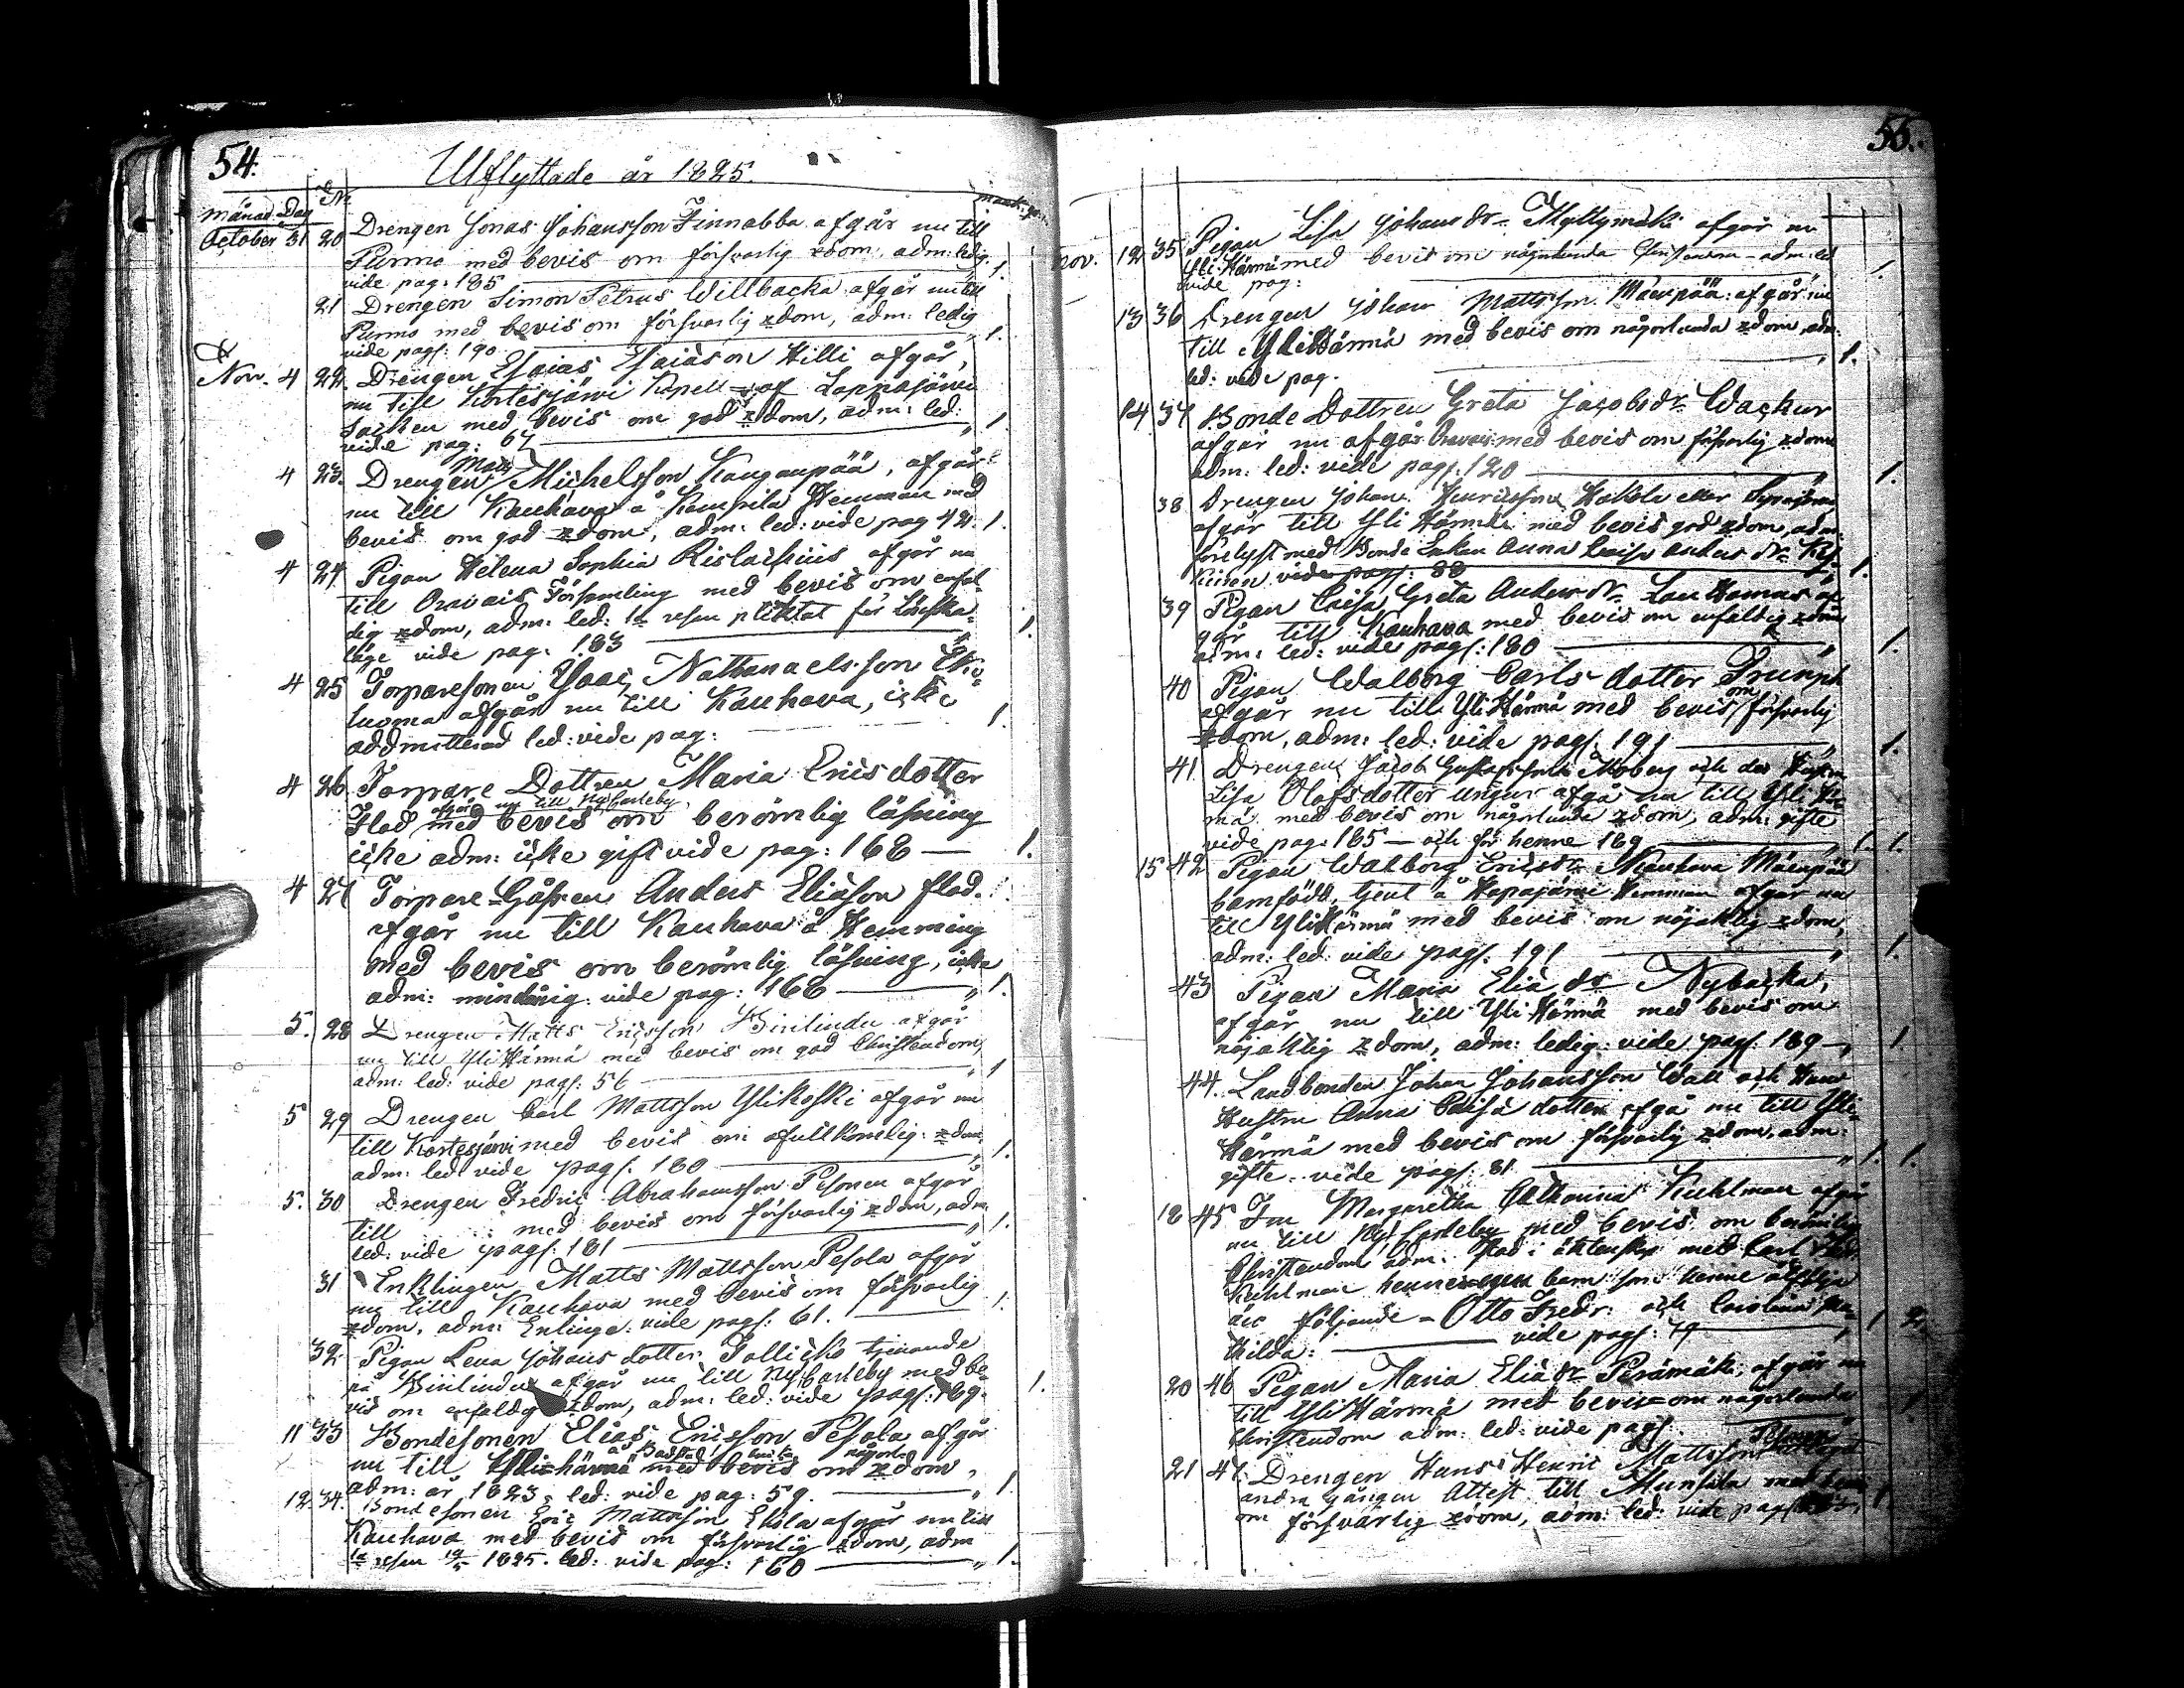 54.
Utflyttade år 1825.
Månad Dag No
October 31 20 Drengen Jonas Johansson Finnabba afgår nu till
Purmo med bevis om försvarlig xdom, adm: ledig.
vide pag: 185 1.
21 Drengen Simon Petrus Willbacka afgår nu till
Purmo med bevis om försvarlig xdom, adm: ledig
vide pags: 190 1.
Nov. 4 22. Drengen Esaias Esaiäson Hilli afgår,
nu till Kortesjärwi Kapell af Lappajärwi
Socken med bevis om god xdom, adm: led:
vide pag: 67 1
4 23. Drengen Matts Michelsson Kanganpää, afgår
nu till Kauhava å Hemman med
bevis om god xdom, adm: led: vide pag 42. 1.
4 24 Pigan Helena Sophia Rislachius afgår nu
till Oravais Församling med bevis om enfal-
dig xdom, adm: led: 1a resan pliktat för Löneska-
läge vide pag: 183 1.
4 25 Torparesonen Isaac Nathanaelsson
luoma afgår nu till Kauhava, icke
addmitterad led: vide pag: 1.
4 26 Torpare Dottren Maria Ericsdotter
afgår nu till Ny Carleby
Flod med bevis om berömlig läsning
icke adm: icke gift vide pag: 168 — 1.
4 27 Torpare-Gåssen Anders Eliäson flod.
afgår nu till Kauhava å Hemming
med bevis om berömlig läsning, icke
adm: mindårig: vide pag: 166 1.
5. 28 Drengen Matts Ericsson afgår
nu till Yli Härmä med bevis om god Christendom,
adm: led: vide pags: 56 1
5 29 Drengen Carl Mattsson Ylikoski afgår nu
till Kortesjärvi med bevis om ofullkomlig: xdom
adm: led: vide pags: 180 1.
5. 30 Drengen Fredric Abrahamsson Pesonen afgår
till med bevis om försvarlig xdom, adm:
led: vide pags: 181 1.
31 Enklingen Matts Mattsson Pesola afgår
nu till Kauhava med bevis om försvarlig
xdom, adm: Enlinge: vide pags: 61. 1.
32 Pigan Lena Johans dotter tjenande
på afgår nu till Ny Carleby med be-
vis om enfaldig xdom, adm: led: vide pags: 169. 1.
11 33 Bondesonen Elias Ericsson Pesola afgår
nu till Yli-härmä med bevis om xdom,
adm: år 1823, led: vide pag: 59. 1
12. 34. Bondesonen Eric Mattsson Ekola afgår nu till
Kauhava med bevis om försvarlig xdom, adm
1a resan 1825. led: vide pag: 160 1.
55.
Nov. 12 35 Pigan Lisa Johans dr Myllymäki afgår nu
Yli-Härmä med bevis om någorlunda Christendom - adm: led
vide pag: 1.
13 36 Drengen Johan Mattsson Mäenpää: afgår nu
till Yli Härmä med bevis om någorlunda xdom, adm:
led: vide pag. 1.
14 37 Bonde Dottren Greta Jacobs dr Wackur
afgår nu afgår Oravais med bevis om försvarlig xdom
adm: led: vide pags: 120 1.
38 Drengen Johan Henricsson Hakola eller
afgår till Yli Härmä med bevis god xdom, adm:
förelyst med Bonde Enkan Anna Caisa Anders dr
vide pags: 88 1.
39 Pigan Caisa Greta Anders dr af-
går till Kauhava med bevis om enfaldig xdom
adm: led: vide pags: 180 1.
40 Pigan Walborg Carls dotter Trumph
afgår nu till Yli Härmä med bevis om försvarlig
xdom, adm: led: vide pags: 191 1.
41. Drengen Jacob Gustafsson Moberg och des Hustru
Lisa Olofsdotter Ungur afgå nu till Yli Här-
mä med bevis om någorlunda xdom, adm: gifte
vide pag: 185 — och för henne 169 1. 1.
15 42 Pigan Walborg Ericsdr Kauhava Mäenpää
barnfödd, tjent å Hapajärvi Hemman afgår nu
till Yli Härmä med bevis om nöjaktig xdom,
adm: led: vide pags: 191 1.
43 Pigan Maria Eliä dr Nybacka,
afgår nu till Yli Härmä med bevis om
nöjaktig xdom, adm: ledig: vide pags: 189 1.
44. Landbonden Johan Johansson Wall och Hans
Hustru Anna Caisa dotter afgå nu till Yli-
Härmä med bevis om försvarlig xdom, adm:
gifte. vide pags: 81 1. 1.
18 45 Fru Margaretha Catharina Kuhlman afgår
nu till Ny Carleby med bevis om berömlig
Christendom adm. stad i äktenskap med Carl
Kuhlman hennes egna barn som henne åtfölja
äro följande - Otto Fredr: och Carolina Ma-
thilda: vide pags: 79 1 2
20 46 Pigan Maria Eliä dr Perämäki, afgår nu
till Yli Härmä med bevis om någorlunda
Christendom adm: led: vide pags. 1
21 47. Drengen Hans Henric Mattsson
andra gången Attest till Munsala med bevis
om försvarlig xdom, adm: led: vide pags 1